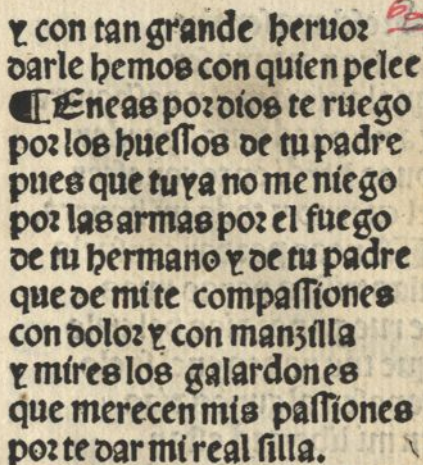 y con tan grande heruor
darle hemos con quien pelee
¶ Eneas por dios te ruego
por los huessos de tu padre
pues que tuya no me niego
por las armas por el fuego
de tu hermano y de tu padre
que de mi te compassiones
con dolor y con manzilla
y mires los galardones
que merecen mis passiones
por te dar mi real silla.